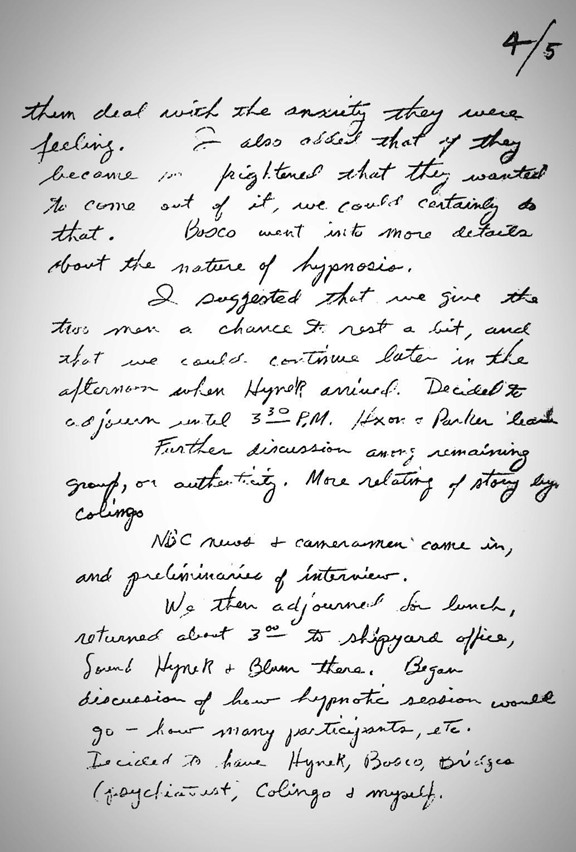 4/5
them deal with the anxiety they were
feeling. I also added that if they
became so frightened that they wanted
to come out of it, we could certainly do
that. Bosco went into more details
about the nature of hypnosis.
I suggested that we give the
two men a chance to rest a bit, and
that we could continue later in the
afternoon when Hynek arrived. Decided to
adjourn until 3³⁰ P.M. Hixon & Parker leave
Further discussion among remaining
group, on authenticity. More relating of story by
Colingo
NBC news & cameramen come in,
and preliminaries of interview.
We then adjourned for lunch,
returned about 3⁰⁰ to shipyard office,
found Hynek & Blum there. Began
discussion of how hypnotic session would
go - how many participants, etc.
Decided to have Hynek, Bosco, Bridges
(psychiatrist, Colingo & myself.